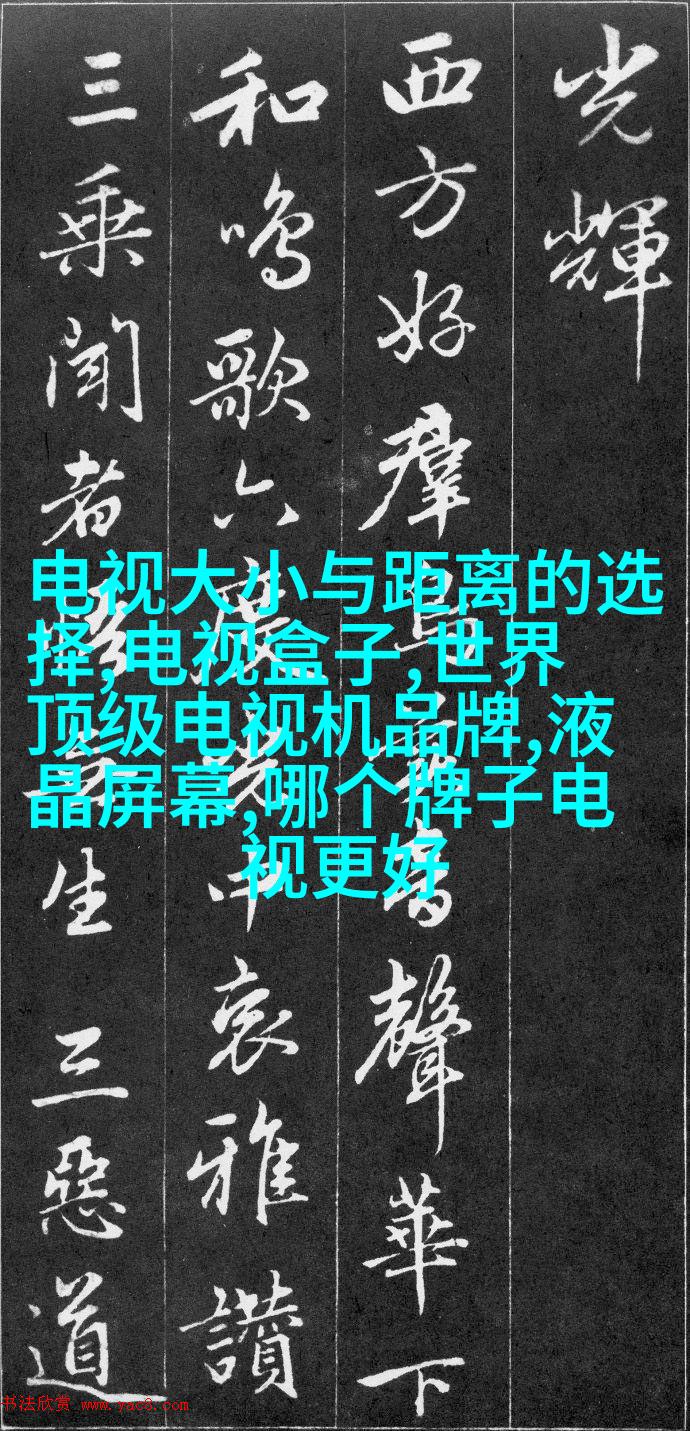 光輝
西方好羣鳥音聲華下
和鳴歌六中哀雅讃
三乗聞者生 三惡道
电视大小与距离的选
择,电视盒子,世界
顶级电视机品牌,液
晶屏幕,哪个牌子电
视更好
书法欣赏 www.yac8.com